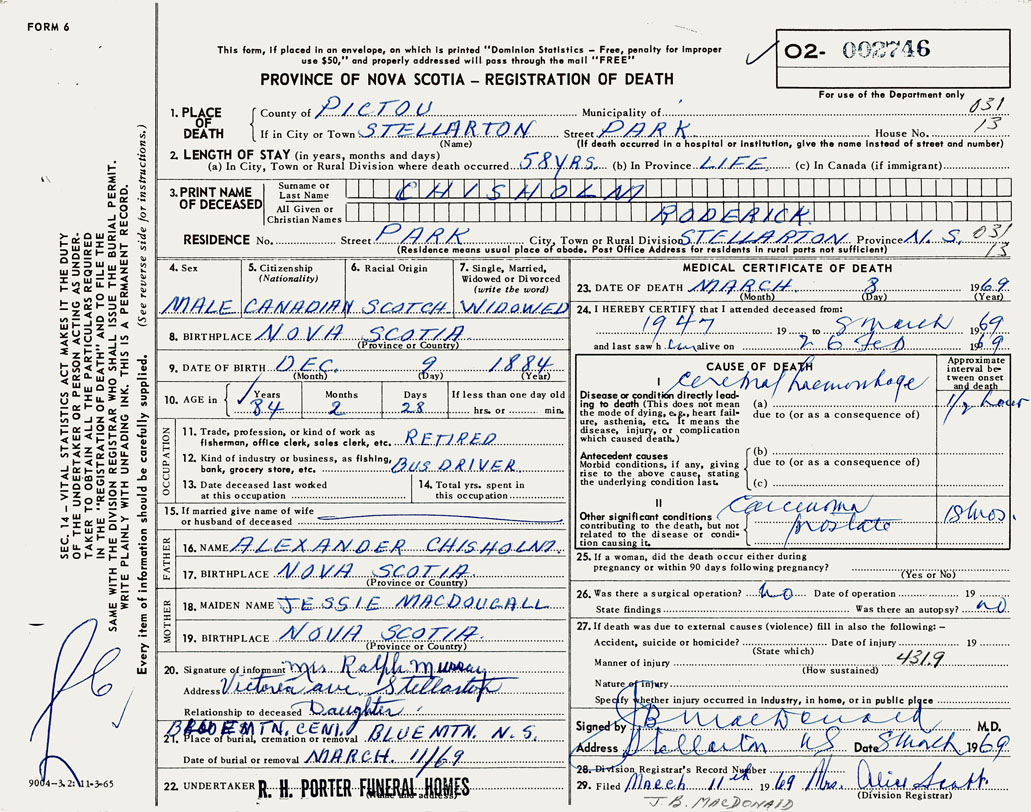 FORM 6
This form, if placed in an envelope, on which is printed "Dominion Statistics – Free, penalty for improper
use $50," and properly addressed will pass through the mail "FREE"
O2- 002746
PROVINCE OF NOVA SCOTIA – REGISTRATION OF DEATH
For use of the Department only
1. PLACE OF DEATH
County of PICTOU Municipality of 031
If in City or Town STELLARTON Street PARK House No. 13
(Name) (If death occurred in a hospital or institution, give the name instead of street and number)
2. LENGTH OF STAY (in years, months and days)
(a) In City, Town or Rural Division where death occurred 58 YRS. (b) In Province LIFE (c) In Canada (if immigrant)
3. PRINT NAME OF DECEASED
Surname or Last Name CHISHOLM
All Given or Christian Names RODERICK
RESIDENCE No. Street PARK City, Town or Rural Division STELLARTON Province N.S. 031
(Residence means usual place of abode. Post Office Address for residents in rural parts not sufficient) 13
4. Sex
MALE
5. Citizenship (Nationality)
CANADIAN
6. Racial Origin
SCOTCH
7. Single, Married, Widowed or Divorced (write the word)
WIDOWED
8. BIRTHPLACE NOVA SCOTIA
(Province or Country)
9. DATE OF BIRTH DEC. 9 1884
(Month) (Day) (Year)
10. AGE in Years Months Days If less than one day old
84 2 28 hrs. or min.
OCCUPATION
11. Trade, profession, or kind of work as
fisherman, office clerk, sales clerk, etc. RETIRED
12. Kind of industry or business, as fishing,
bank, grocery store, etc. BUS DRIVER
13. Date deceased last worked
at this occupation
14. Total yrs. spent in
this occupation
15. If married give name of wife
or husband of deceased
FATHER
16. NAME ALEXANDER CHISHOLM
17. BIRTHPLACE NOVA SCOTIA
(Province or Country)
MOTHER
18. MAIDEN NAME JESSIE MACDOUGALL
19. BIRTHPLACE NOVA SCOTIA.
(Province or Country)
20. Signature of informant Mrs. Ralph Murray
Address Victoria ave. Stellarton
Relationship to deceased Daughter
BLUE MTN. CEM.
21. Place of burial, cremation or removal BLUE MTN. N.S.
Date of burial or removal MARCH. 11/69
22. UNDERTAKER R. H. PORTER FUNERAL HOMES
(Name and address)
MEDICAL CERTIFICATE OF DEATH
23. DATE OF DEATH MARCH 8 1969
(Month) (Day) (Year)
24. I HEREBY CERTIFY that I attended deceased from:
1947 19 to 8 March 1969
and last saw him alive on 26 Feb 1969
CAUSE OF DEATH
Approximate interval between onset and death
I
Disease or condition directly leading to death (This does not mean
the mode of dying, e.g., heart failure, asthenia, etc. It means the
disease, injury, or complication
which caused death.)
(a) cerebral haemorrhage 1/2 hour
due to (or as a consequence of)
Antecedent causes
Morbid conditions, if any, giving
rise to the above cause, stating
the underlying condition last.
(b)
due to (or as a consequence of)
(c)
II
Other significant conditions
contributing to the death, but not
related to the disease or condition causing it.
Carcinoma
prostate
18 mos.
25. If a woman, did the death occur either during
pregnancy or within 90 days following pregnancy?
(Yes or No)
26. Was there a surgical operation? no Date of operation 19
State findings Was there an autopsy? no
27. If death was due to external causes (violence) fill in also the following: –
Accident, suicide or homicide? Date of injury 19
(State which)
Manner of injury 431.9
(How sustained)
Nature of injury
Specify whether injury occurred in industry, in home, or in public place
Signed by JB MacDonald M.D.
Address Stellarton NS Date 8 March 1969
28. Division Registrar's Record Number
29. Filed March 11th 1969 Mrs. Alice Scott
(Division Registrar)
J.B. MACDONALD
SEC. 14 – VITAL STATISTICS ACT MAKES IT THE DUTY
OF THE UNDERTAKER OR PERSON ACTING AS UNDER-
TAKER TO OBTAIN ALL THE PARTICULARS REQUIRED
IN THE "REGISTRATION OF DEATH" AND TO FILE THE
SAME WITH THE DIVISION REGISTRAR WHO SHALL ISSUE THE BURIAL PERMIT.
WRITE PLAINLY WITH UNFADING INK. THIS IS A PERMANENT RECORD.
Every item of information should be carefully supplied. (See reverse side for instructions.)
9004-3.2: 11-3-65